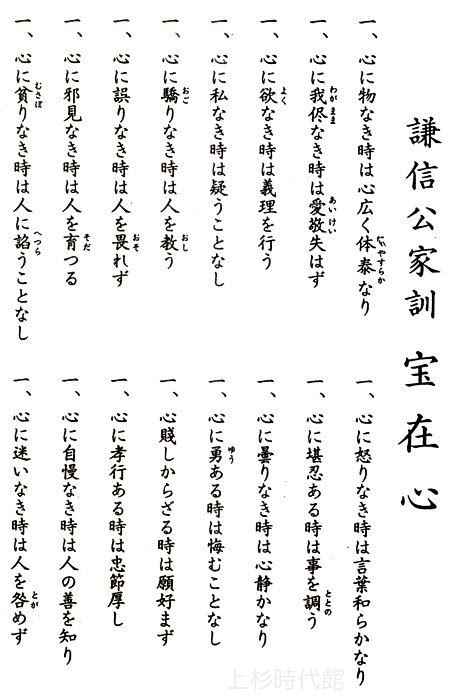 謙信公家訓 宝在心
一、心に物なき時は心広く体泰なり
一、心に我侭なき時は愛敬失はず
一、心に欲なき時は義理を行う
一、心に私なき時は疑うことなし
一、心に驕りなき時は人を教う
一、心に誤りなき時は人を畏れず
一、心に邪見なき時は人を育つる
一、心に貧りなき時は人に諂うことなし
一、心に怒りなき時は言葉和らかなり
一、心に堪忍ある時は事を調う
一、心に曇りなき時は心静かなり
一、心に勇ある時は悔むことなし
一、心賤しからざる時は願好まず
一、心に孝行ある時は忠節厚し
一、心に自慢なき時は人の善を知り
一、心に迷いなき時は人を咎めず
上杉時代館